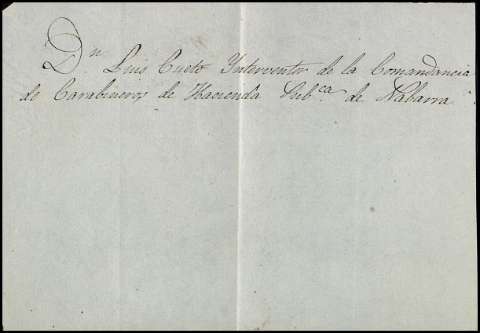 Dn Luis Cueto Interventor de la Comandancia
de Carabineros de Hacienda Pubca de Nabarra